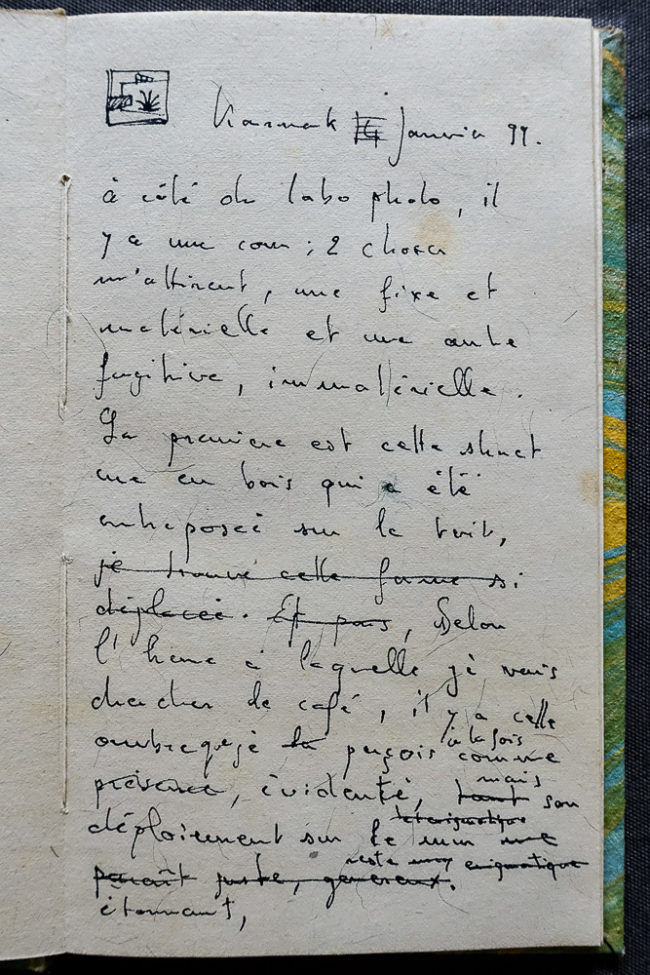 Karnak 4 Janvier 99.
à côté du labo photo, il
y a une cour ; 2 choses
m'attirent, une fixe et
matérielle et une autre
fugitive, immatérielle.
La première est cette struct
ure en bois qui a été
entreposée sur le toit,
je trouve cette forme si
déplacée. Et puis, Selon
l'heure à laquelle je vais
chercher le café, il y a cette
ombre que je la perçois à la fois comme
présence, évidente, tant mais son
déploiement sur le mur me
paraît juste, généreux. reste énigmatique
étonnant,